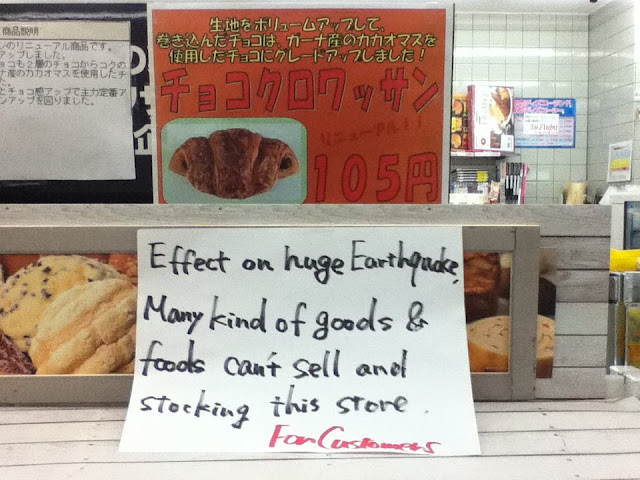 商品説明
いのリニューアル商品です。
アップしました。
ョコも２層のチョコからコクの
ナ産のカカオマスを使用したチ
た。
とチョコ感アップで主力定番ア
ンアップを図りました。
生地をボリュームアップして、
巻き込んだチョコは、ガーナ産のカカオマスを
使用したチョコにグレードアップしました！
チョコクロワッサン
リニューアル！！
105円
Effect on huge Earthquake,
Many kind of goods &
foods can't sell and
stocking this store.
For Customers